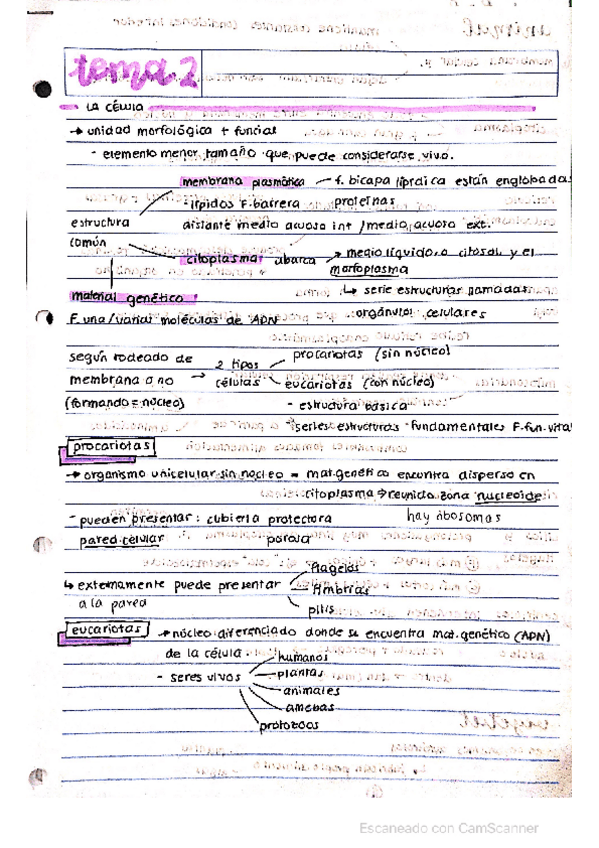 tema.2
LA CÉLULA
→ unidad morfológica + funcial
- elemento menor tamaño que puede considerarse vivo.
membrana plasmática — f. bicapa lipídica están englobadas
lípidos F. barrera proteínas
estructura aislante medio acuoso int /medio acuoso ext.
común citoplasma abarca → medio líquido o citosol y el
morfoplasma
material genético ↳ serie estructuras llamadas
F. una/varias moléculas de ADN orgánulos celulares
según rodeado de 2 tipos procariotas (sin núcleo)
membrana o no → células eucariotas (con núcleo)
(formando = núcleo) - estructura básica
series estructuras fundamentales F. fun. vital
procariotas
→ organismo unicelular sin núcleo = mat. genético encuentra disperso en
citoplasma → reunida zona nucleoide
- pueden presentar: cubierta protectora hay ribosomas
pared celular porosa
flagelos
↳ externamente puede presentar fimbrias
a la pared pilis
eucariotas → núcleo diferenciado donde se encuentra mat. genético (ADN)
de la célula
humanos
- seres vivos plantas
animales
amebas
protozoos
Escaneado con CamScanner